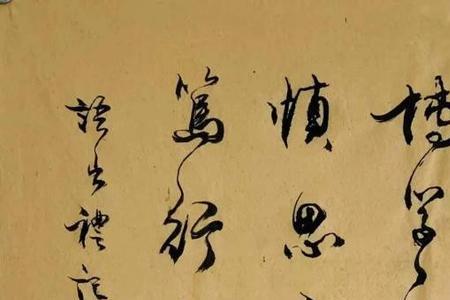 博学
慎思
笃行
語出禮記